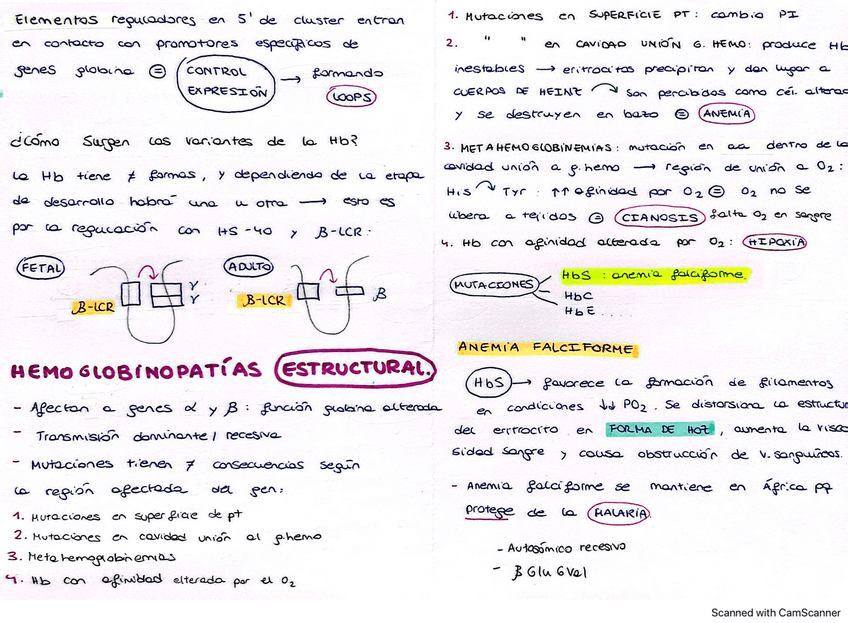 Elementos reguladores en 5' de cluster entran
en contacto con promotores específicos de
genes globina = CONTROL EXPRESIÓN → formando
LOOPS
¿Cómo surgen las variantes de la Hb?
La Hb tiene ≠ formas, y dependiendo de la etapa
de desarrollo habrá una u otra → esto es
por la regulación con HS-40 y β-LCR:
FETAL
β-LCR
γ
γ
ADULTO
β-LCR
β
HEMOGLOBINOPATÍAS ESTRUCTURAL.
- Afectan a genes α y β: función globina alterada
- Transmisión dominante / recesiva
- Mutaciones tienen ≠ consecuencias según
la región afectada del gen:
1. Mutaciones en superficie de pt
2. Mutaciones en cavidad unión al g.hemo
3. Metahemoglobinemias
4. Hb con afinidad alterada por el O2
1. Mutaciones en SUPERFICIE PT: cambio PI
2. " " en CAVIDAD UNIÓN G. HEMO: produce Hb
inestables → eritrocitos precipitan y dan lugar a
CUERPOS DE HEINZ son percibidos como cél. alterad
y se destruyen en bazo = ANEMIA
3. METAHEMOGLOBINEMIAS: mutación en aa dentro de la
cavidad unión a g.hemo → región de unión a O2:
His Tyr: ↑↑ afinidad por O2 = O2 no se
libera a tejidos = CIANOSIS falta O2 en sangre
4. Hb con afinidad alterada por O2: HIPOXIA
MUTACIONES
HbS: anemia falciforme.
HbC
HbE ....
ANEMIA FALCIFORME
HbS → favorece la formación de filamentos
en condiciones ↓↓ PO2. Se distorsiona la estructu
del eritrocito en FORMA DE HOZ, aumenta la visco
sidad sangre y causa obstrucción de v. sanguíneos.
- Anemia falciforme se mantiene en África pq
protege de la MALARIA.
- Autosómico recesivo
- β Glu 6 Val
Scanned with CamScanner